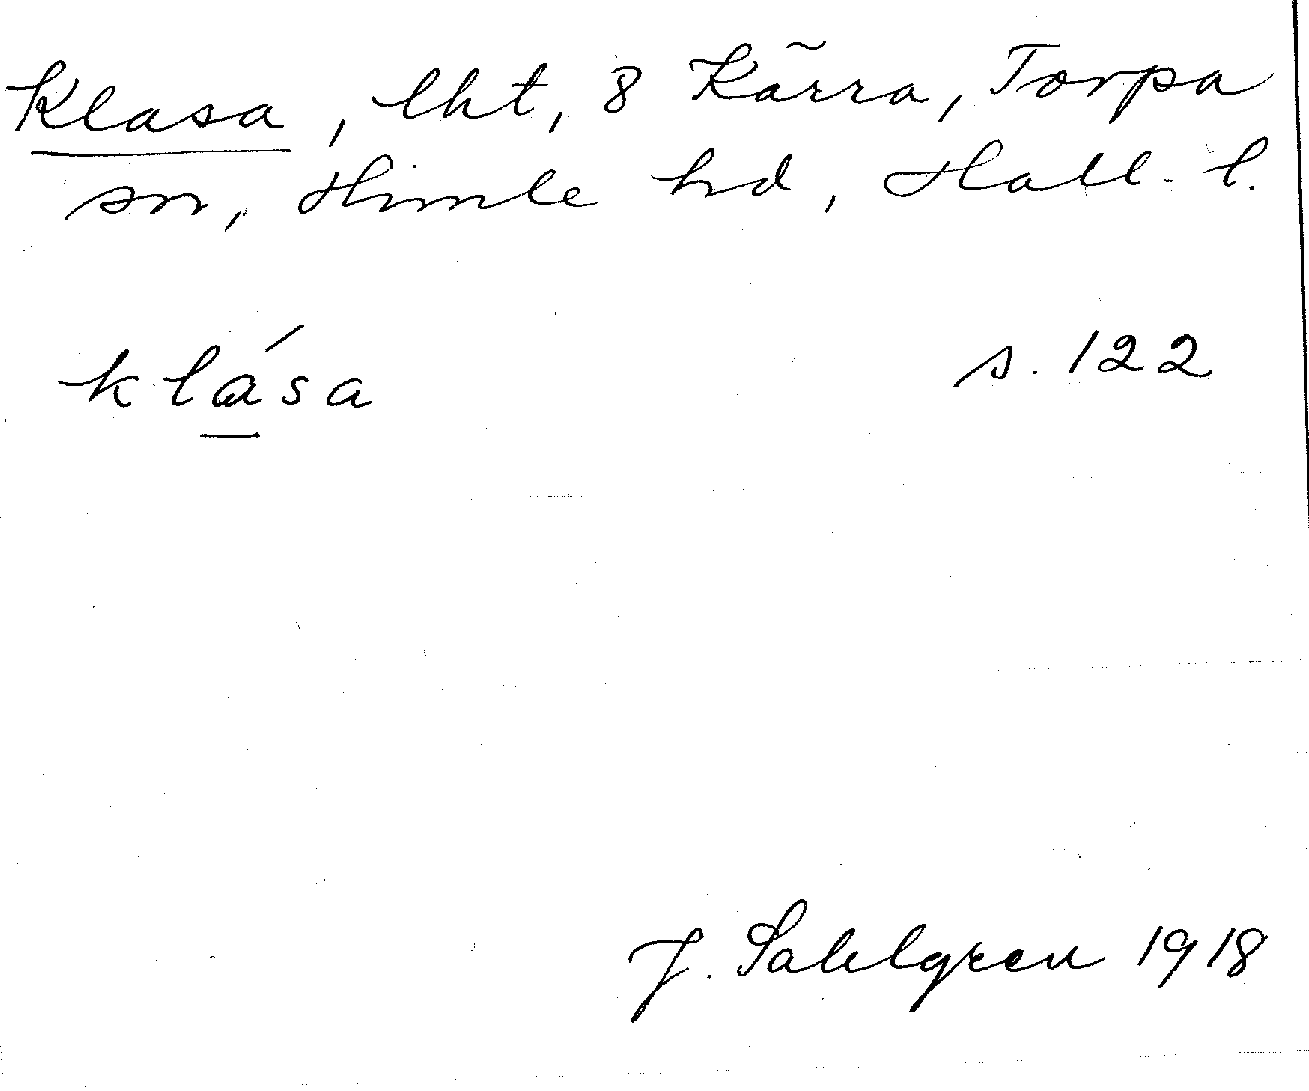 Klasa, lht, 8 Kärra, Torpa
sn, Himle hd, Hall. l.
klása s. 122
J. Sahlgren 1918